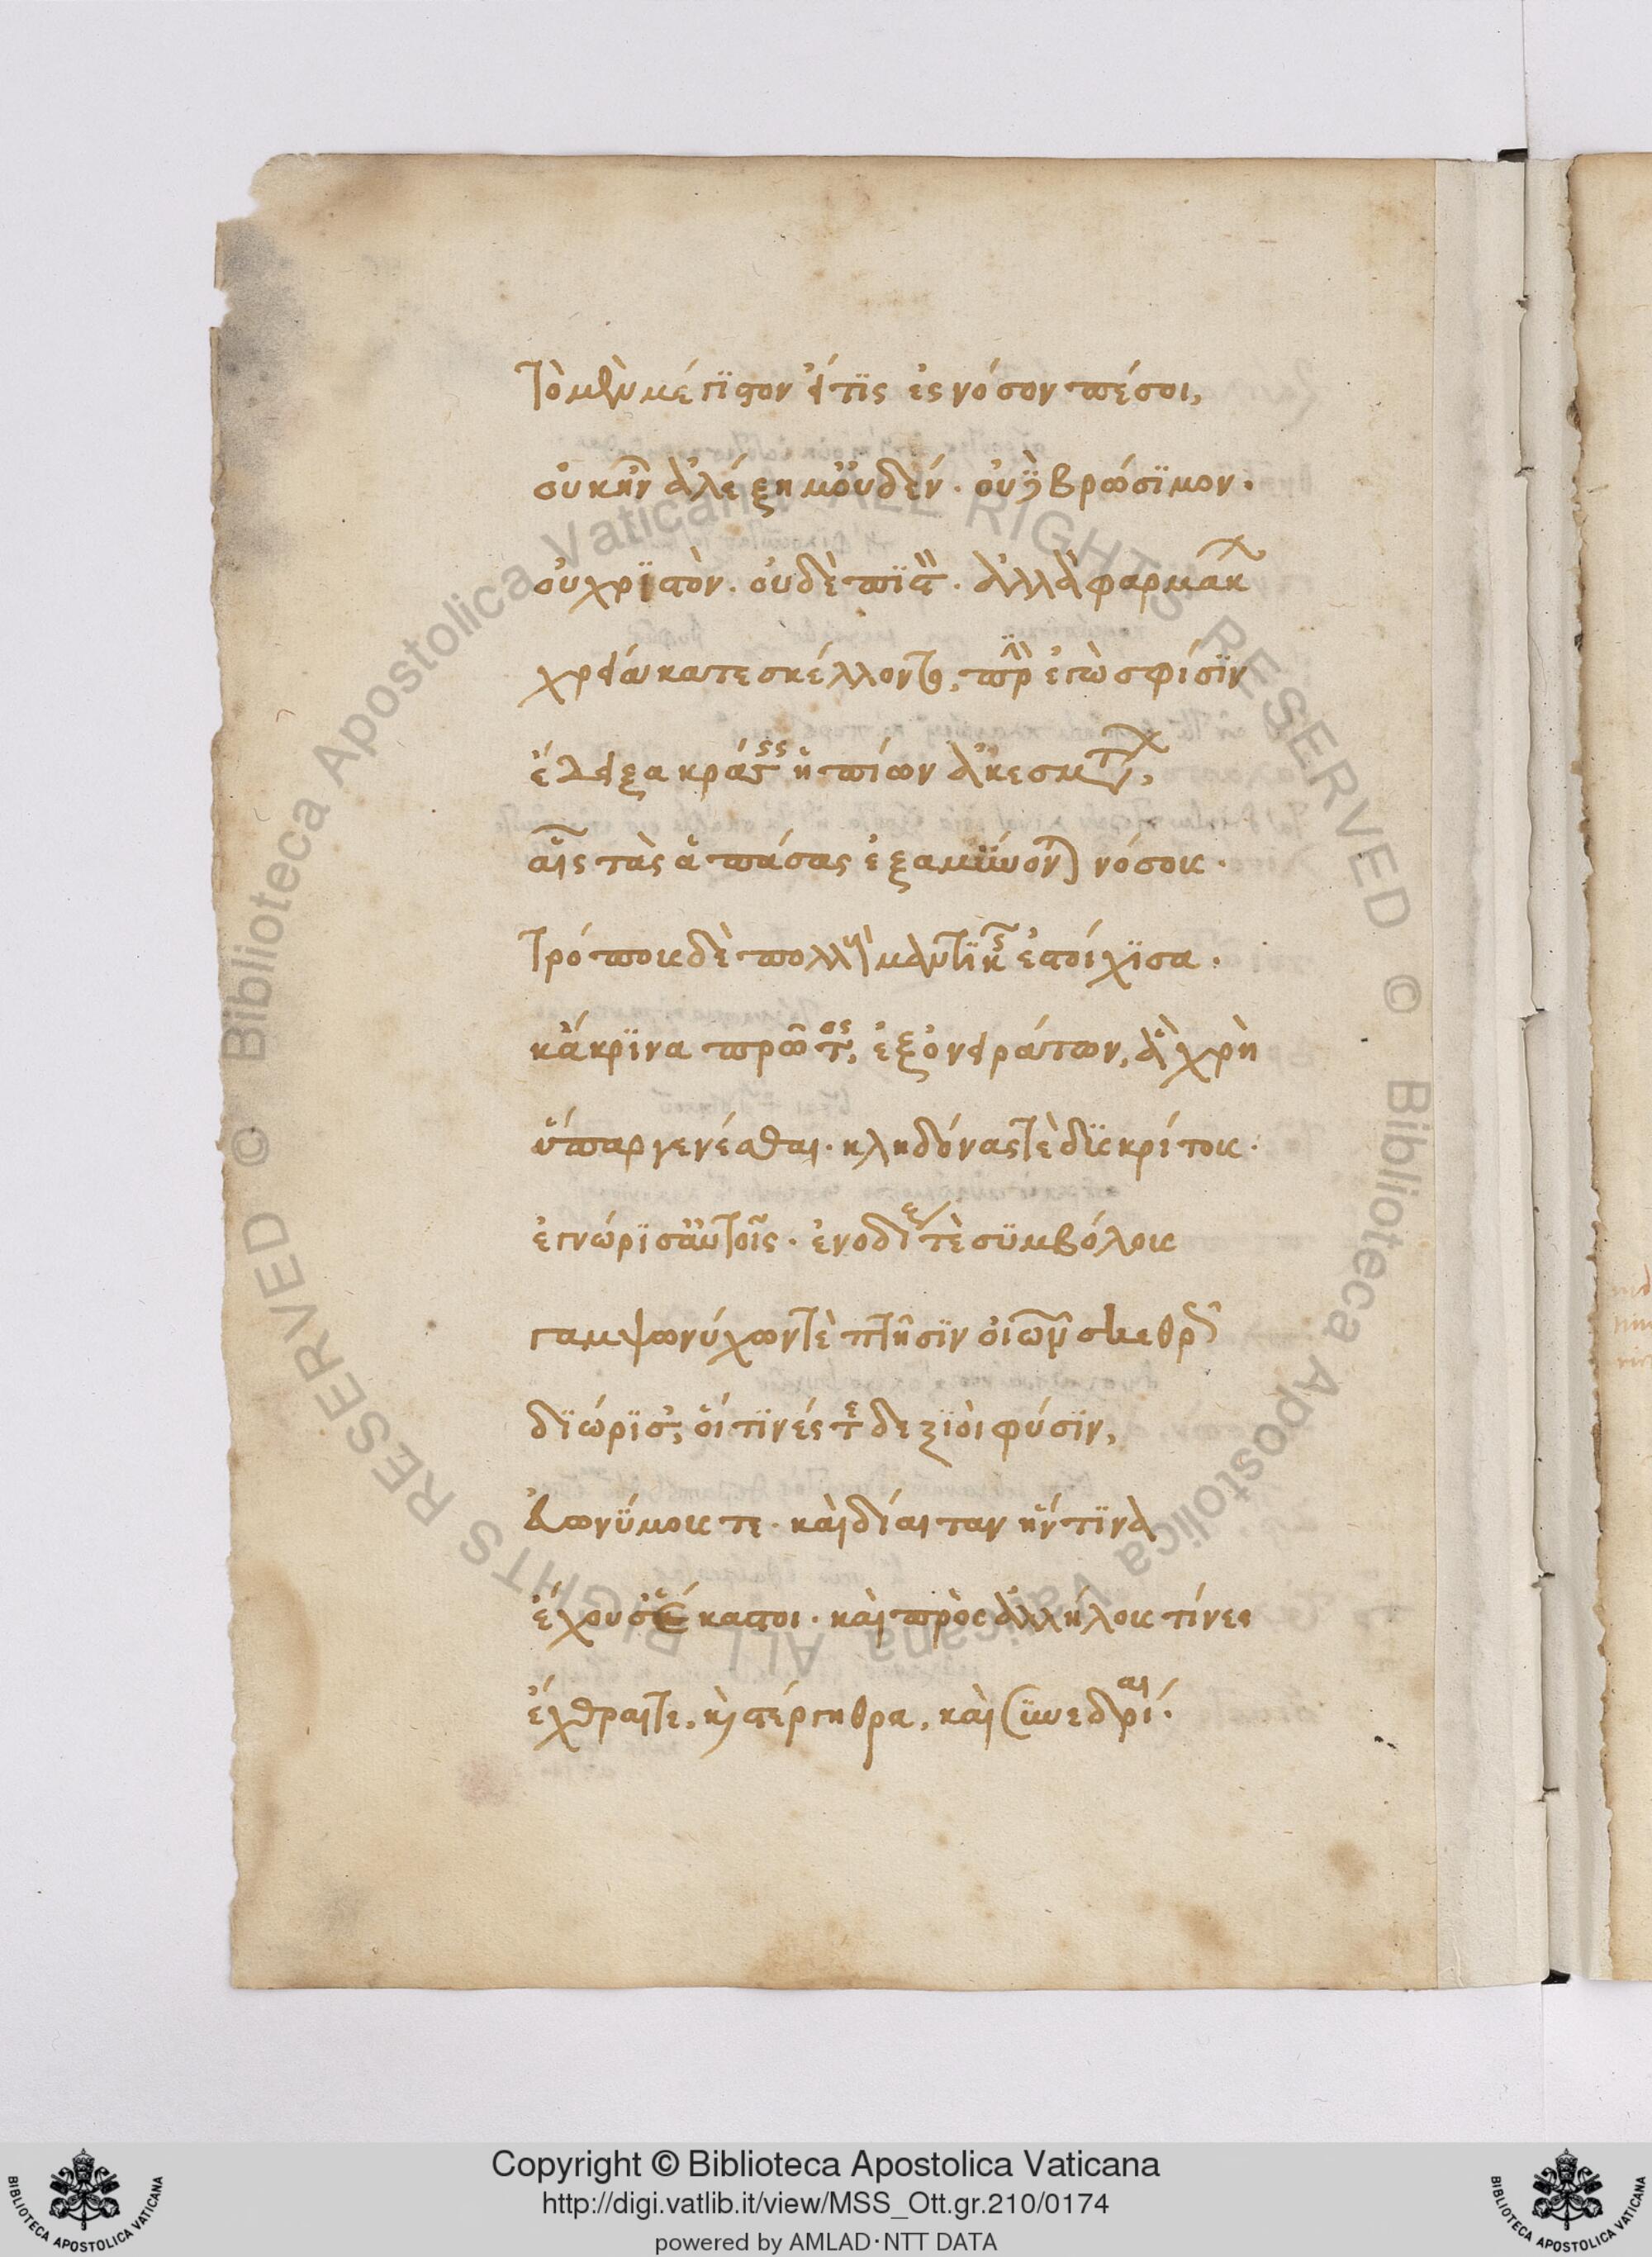 τὸ μὲν μέγιστον εἴ τις ἐς νόσον πέσοι,
οὐκ ἦν ἀλέξημ' οὐδέν. οὔτε βρώσιμον.
οὐ χριστὸν. οὐδὲ πιστὸν. ἀλλὰ φαρμάκων
χρείᾳ κατεσκέλλοντο, πρὶν ἐγὼ σφίσιν
ἔδειξα κράσεις ἠπίων ἀκεσμάτων,
αἷς τὰς ἁπάσας ἐξαμύνονται νόσους.
τρόπους δὲ πολλοὺς μαντικῆς ἐστοίχισα.
κἄκρινα πρῶτος ἐξ ὀνειράτων, ἃ χρὴ
ὕπαρ γενέσθαι. κληδόνας τὲ δυσκρίτους.
ἐγνώρισ' αὐτοῖς. ἐνοδίους τὲ συμβόλους
γαμψωνύχων τὲ πτῆσιν οἰωνῶν σκεθρῶς
διώρισ', οἵ τινές τε δεξιοὶ φύσιν,
εὐωνύμους τε. καὶ δίαιταν ἥν τινα
ἔχουσ' ἕκαστοι. καὶ πρὸς ἀλλήλους τίνες
ἔχθραι τε, καὶ στέργηθρα, καὶ συνεδρίαι.
Copyright © Biblioteca Apostolica Vaticana
http://digi.vatlib.it/view/MSS_Ott.gr.210/0174
powered by AMLAD·NTT DATA
BIBLIOTECA APOSTOLICA VATICANA
BIBLIOTECA APOSTOLICA VATICANA
© Biblioteca Apostolica Vaticana ALL RIGHTS RESERVED
© Biblioteca Apostolica Vaticana ALL RIGHTS RESERVED